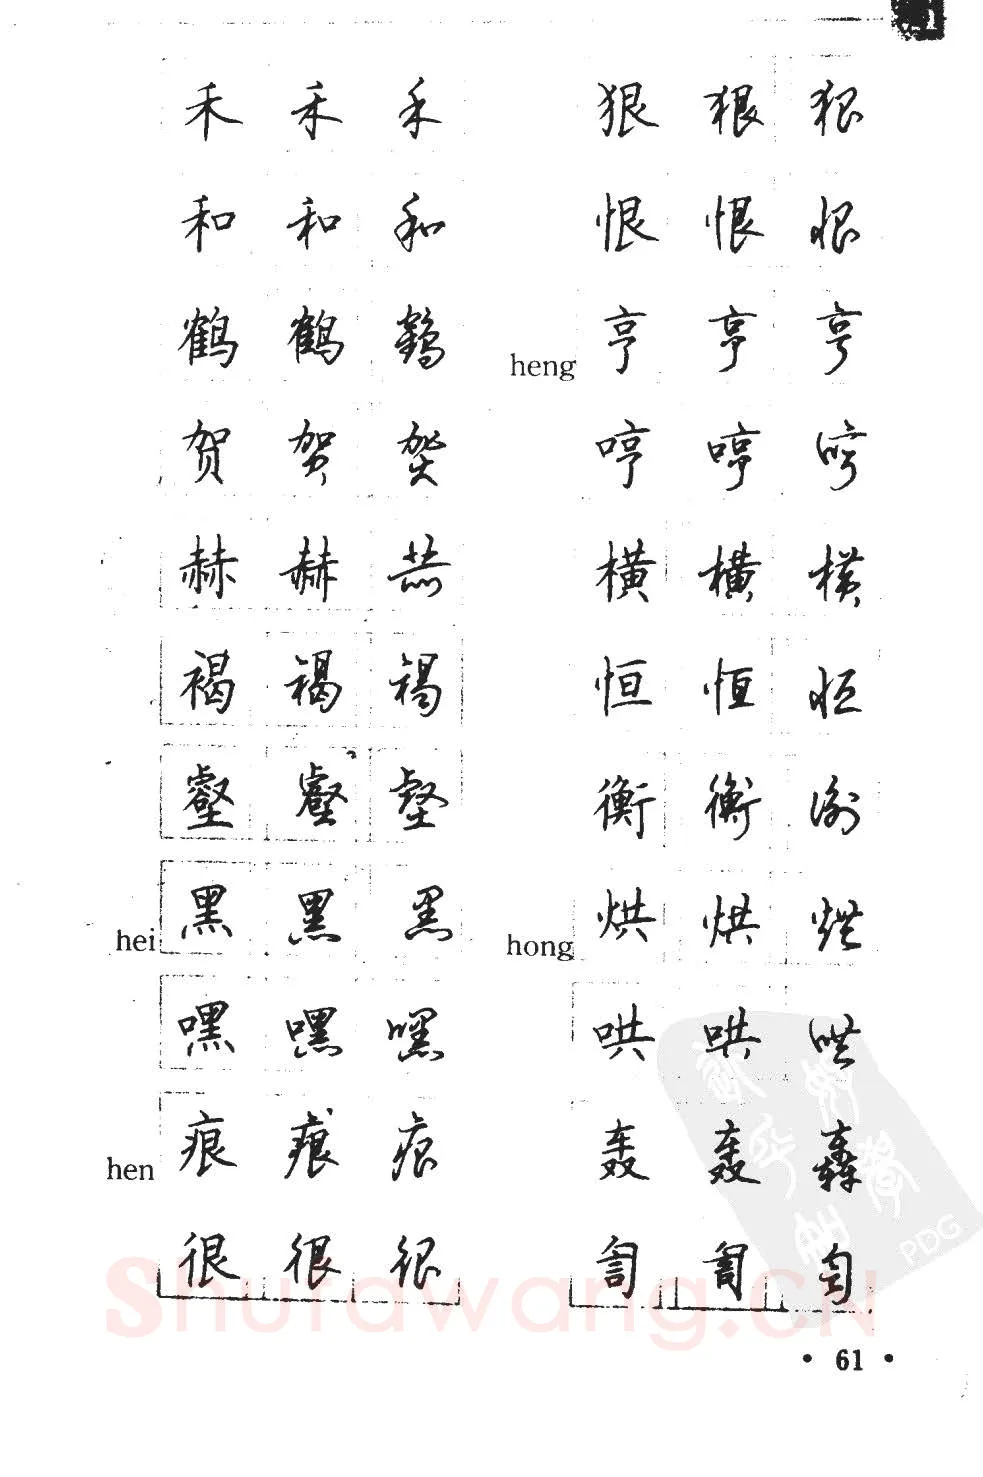 禾 禾 禾
和 和 和
鹤 鹤 鹤
贺 贺 贺
赫 赫 赫
褐 褐 褐
壑 壑 壑
hei 黑 黑 黑
嘿 嘿 嘿
hen 痕 痕 痕
很 很 很
狠 狠 狠
恨 恨 恨
heng 亨 亨 亨
哼 哼 哼
横 横 横
恒 恒 恒
衡 衡 衡
hong 烘 烘 烘
哄 哄 哄
轰 轰 轰
訇 訇 訇
Shufawang.CN
PDG
• 61 •